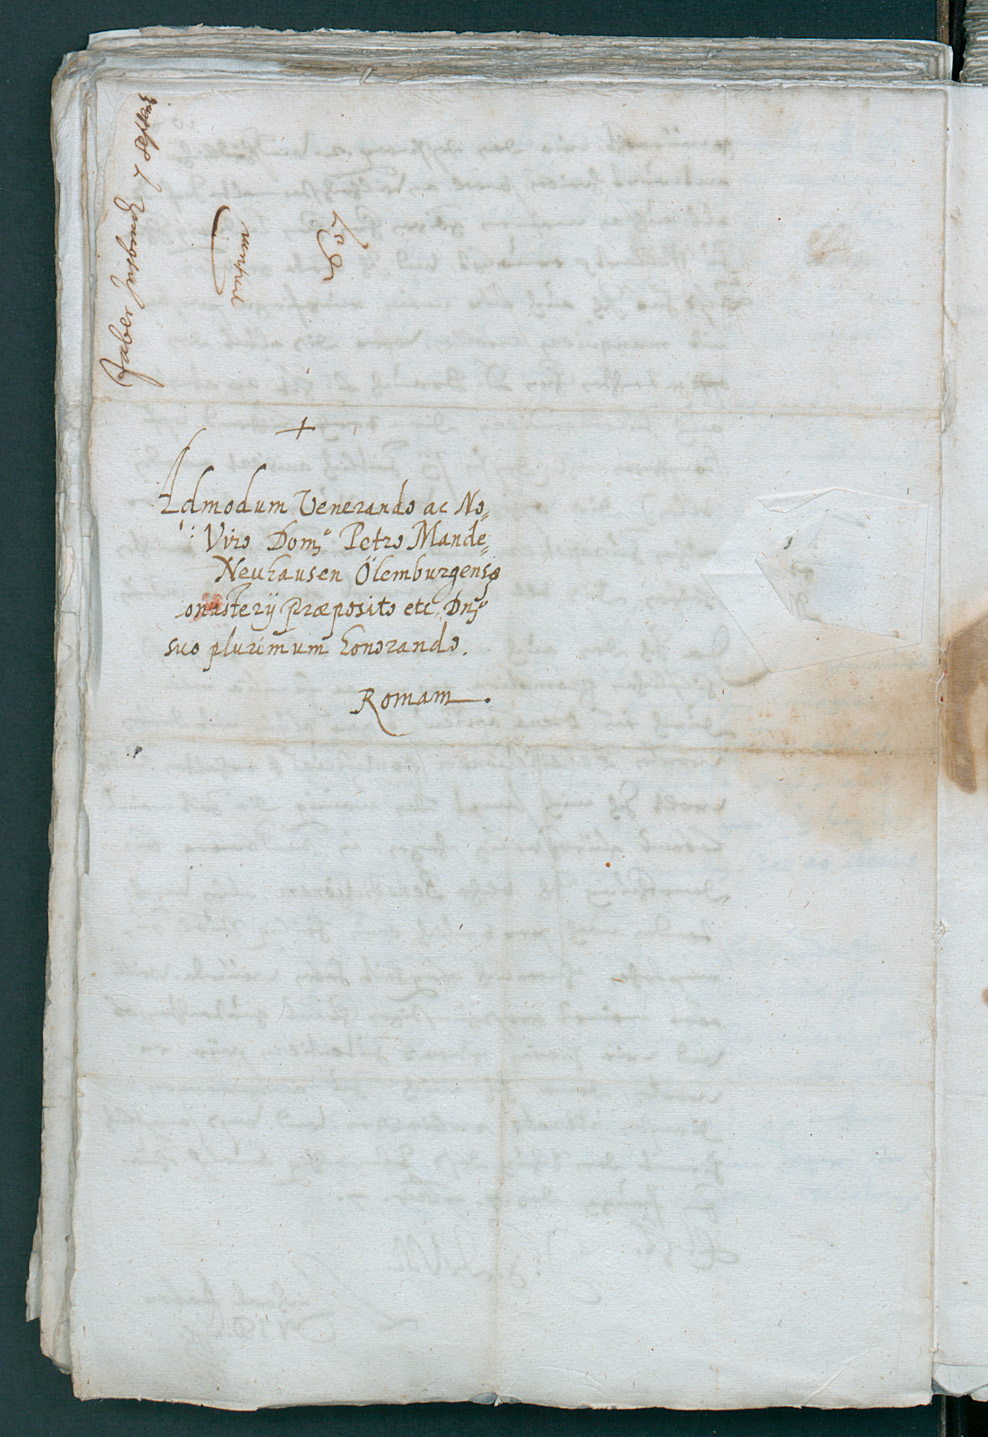 Faber Insbruck 7 Septemb
+
Admodum Venerando ac No=
Viro Domº Petro Mande=
Neuhausen Ölemburgensis
onasterij Præposito etc. Dnº
suo plurimum honorando.
Romam.